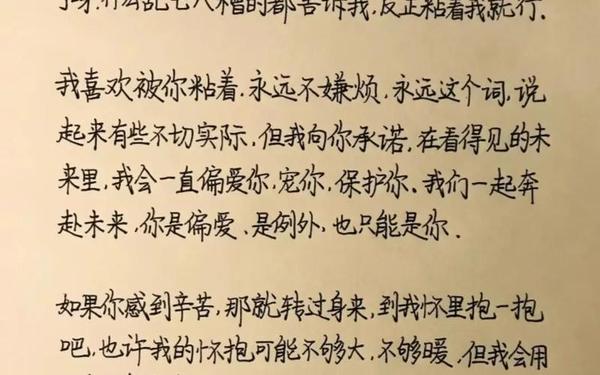 乱七八糟的都告诉我,反正粘着我就行.
我喜欢被你粘着.永远不嫌烦.永远这个词,说
起来有些不切实际.但我向你承诺.在看得见的未
来里,我会一直偏爱你,宠你,保护你.我们一起奔
赴未来,你是偏爱、是例外,也只能是你.
如果你感到辛苦,那就转过身来,到我怀里抱一抱
吧,也许我的怀抱可能不够大,不够暖.但我会用